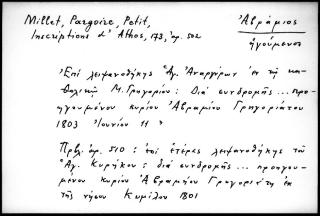 Millet, Pargoire, Petit,
Inscriptions d'Athos, 173, ἀρ. 502
Ἀβράμιος
ἡγούμενος
Ἐπί λειψανοθήκης Ἁγ. Ἀναργύρων ἐν τῷ κα-
θολικῷ Μ. Γρηγορίου : Διά συνδρομῆς ... προ-
ηγουμένου κυρίου Ἀβραμίου Γρηγοριάτου
1803 Ἰουνίου 11
Πρβλ. ἀρ. 510 : ἐπί ἑτέρας λειψανοθήκης τοῦ
Ἁγ. Κηρύκου : διά συνδρομῆς ... προηγου-
μένου κυρίου Ἀβραμίου Γρηγορι
τῆς νήσου Κιμώλου 1801